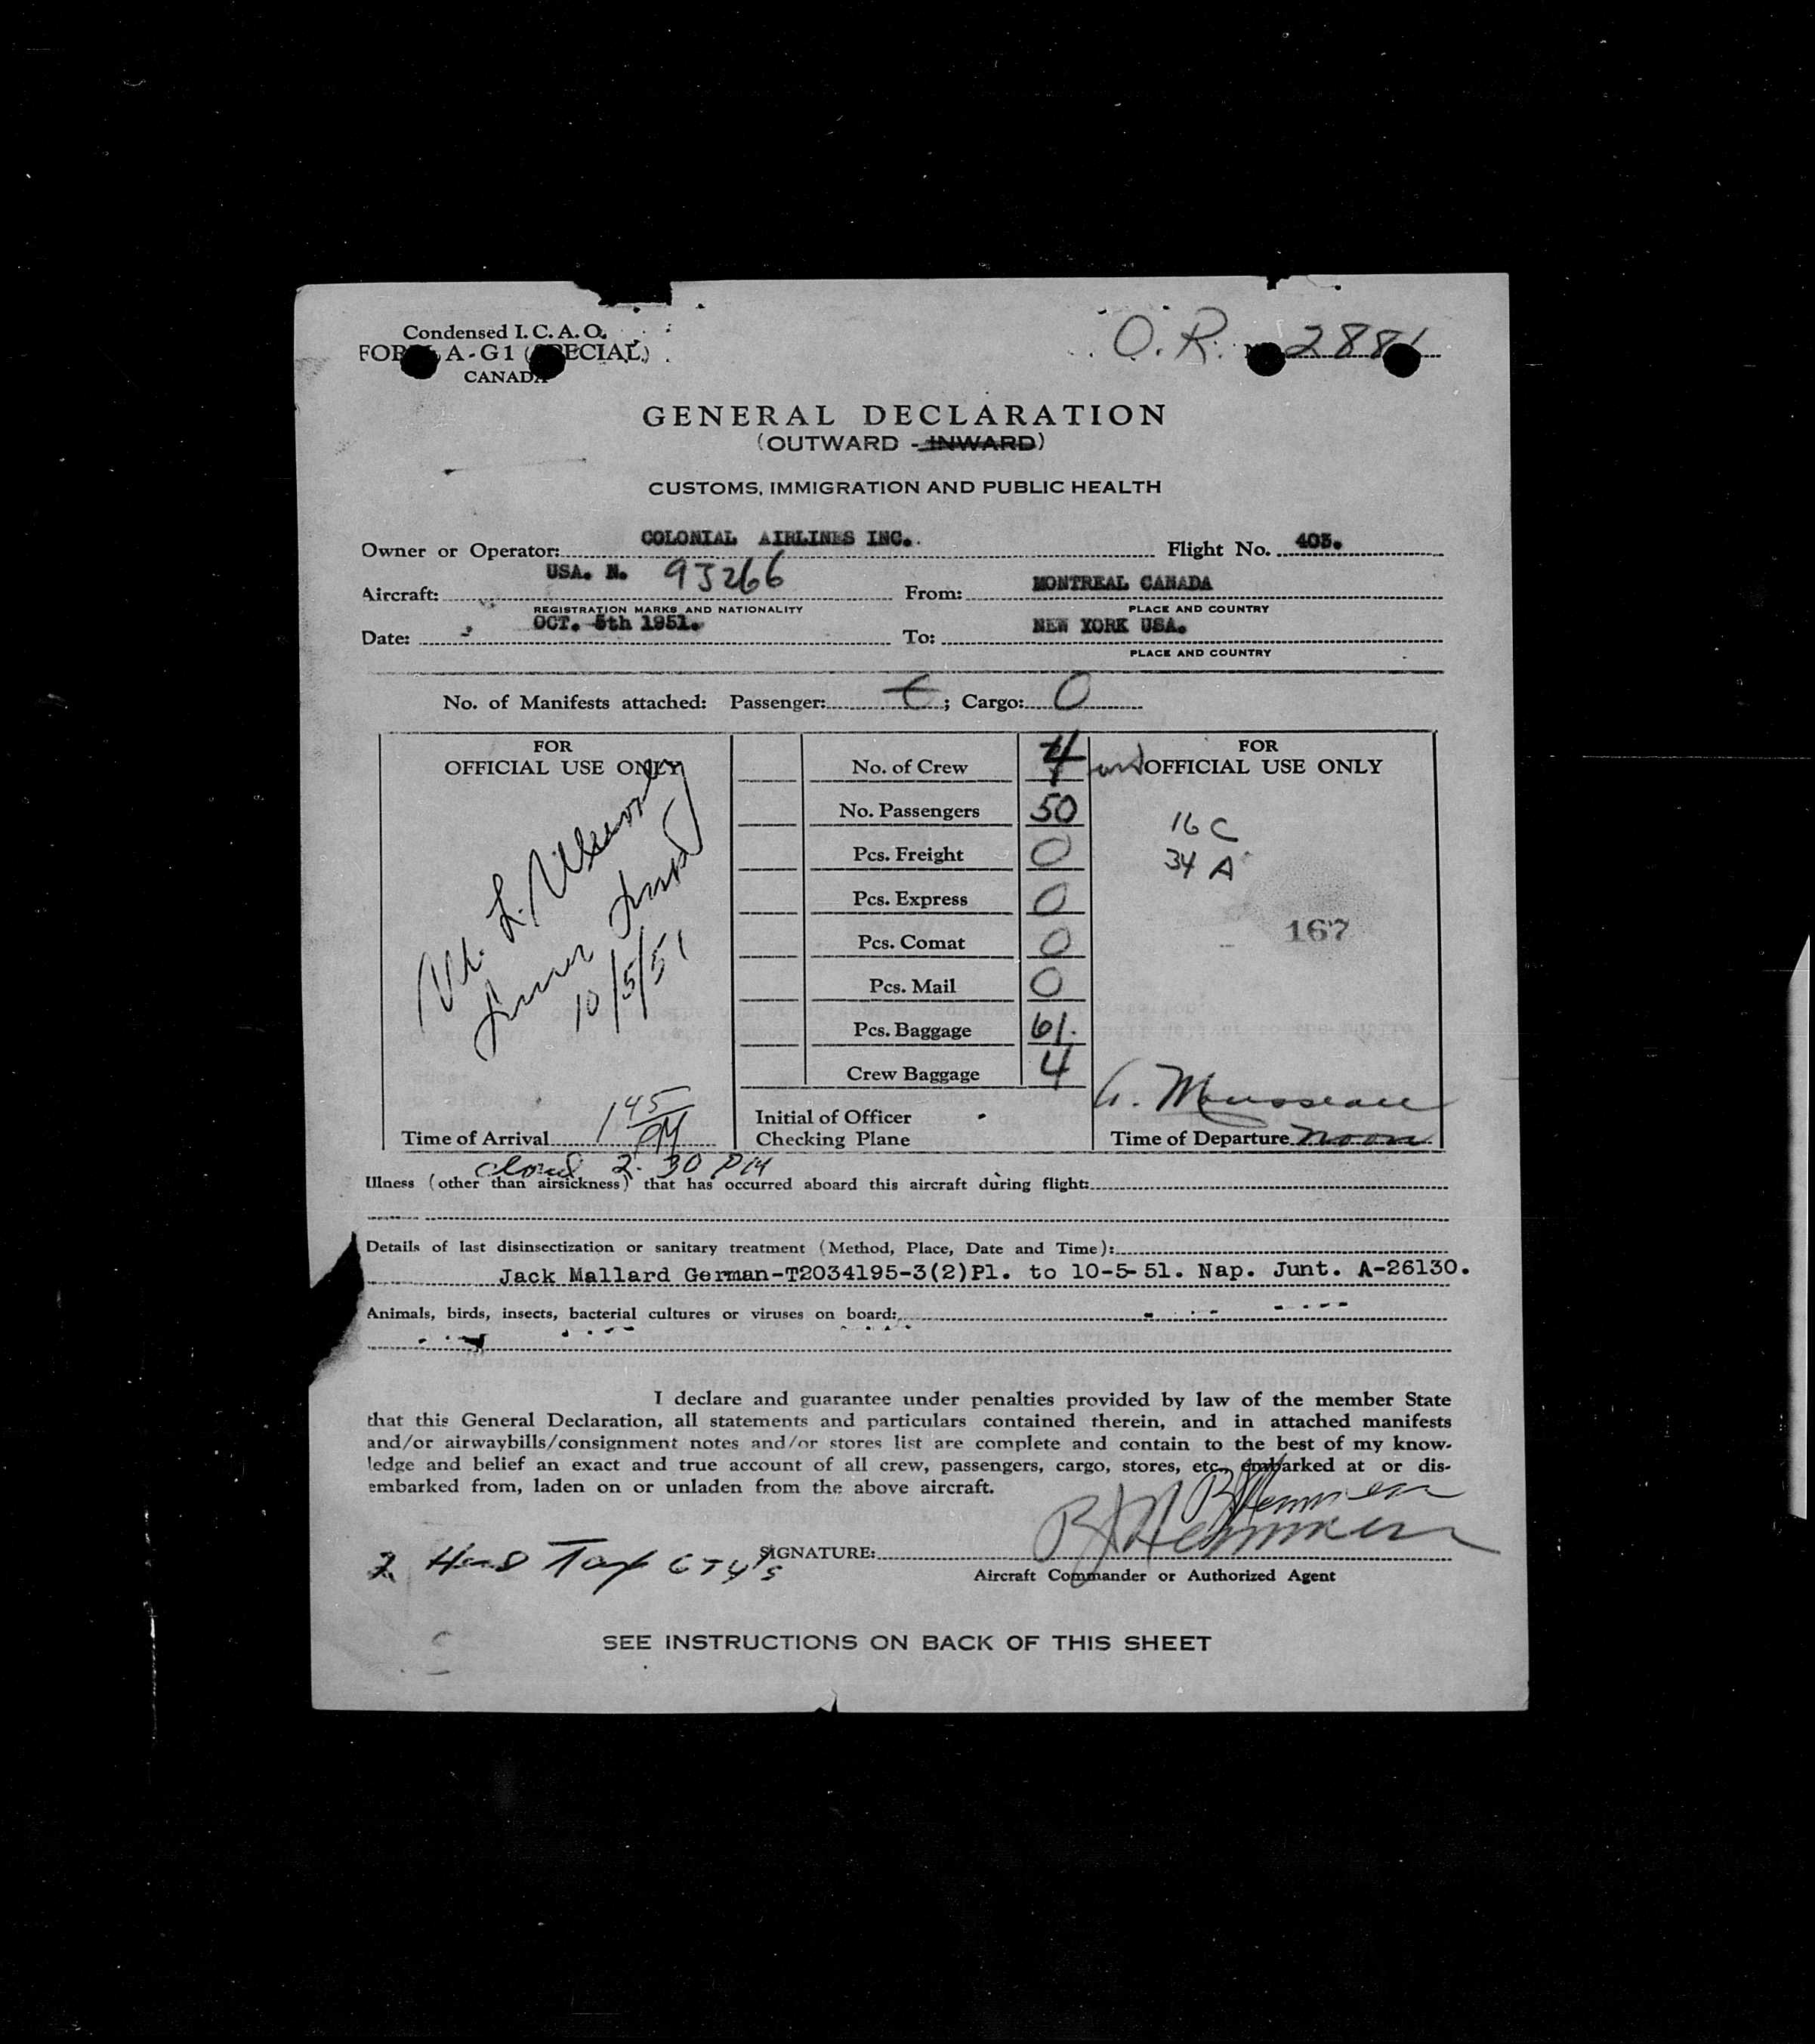 Condensed I. C. A. O.
FORM A-G1 (SPECIAL)
CANADA
O. R. No. 2881
GENERAL DECLARATION
(OUTWARD - INWARD)
CUSTOMS, IMMIGRATION AND PUBLIC HEALTH
Owner or Operator: COLONIAL AIRLINES INC. Flight No. 403.
Aircraft: USA. N. 93266 From: MONTREAL CANADA
REGISTRATION MARKS AND NATIONALITY PLACE AND COUNTRY
Date: OCT. 5th 1951. To: NEW YORK USA.
PLACE AND COUNTRY
No. of Manifests attached: Passenger: ; Cargo: 0
FOR
OFFICIAL USE ONLY
L.
10/5/51
Time of Arrival 1 45 PM
No. of Crew 4
No. Passengers 50
Pcs. Freight 0
Pcs. Express 0
Pcs. Comat 0
Pcs. Mail 0
Pcs. Baggage 61.
Crew Baggage 4
Initial of Officer
Checking Plane
FOR
OFFICIAL USE ONLY
16 C
34 A
167
Mousseau
Time of Departure noon
2.30 PM
Illness (other than airsickness) that has occurred aboard this aircraft during flight:
Details of last disinsectization or sanitary treatment (Method, Place, Date and Time):
Jack Mallard German-T2034195-3(2)Pl. to 10-5-51. Nap. Junt. A-26130.
Animals, birds, insects, bacterial cultures or viruses on board:
I declare and guarantee under penalties provided by law of the member State
that this General Declaration, all statements and particulars contained therein, and in attached manifests
and/or airwaybills/consignment notes and/or stores list are complete and contain to the best of my know-
ledge and belief an exact and true account of all crew, passengers, cargo, stores, etc., embarked at or dis-
embarked from, laden on or unladen from the above aircraft.
2 Tax
SIGNATURE:
Aircraft Commander or Authorized Agent
SEE INSTRUCTIONS ON BACK OF THIS SHEET